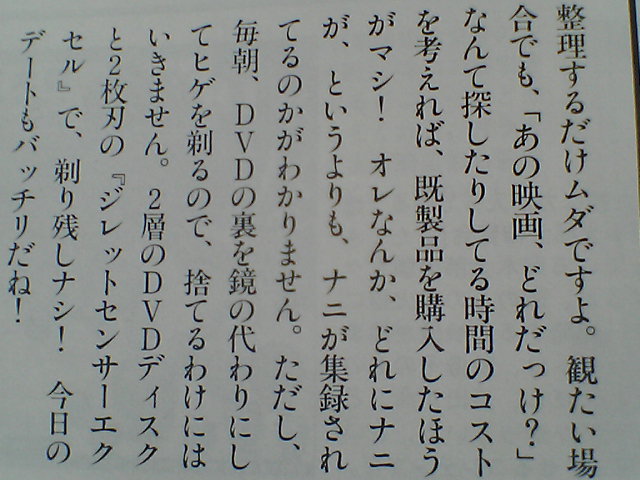 整理するだけムダですよ。観たい場
合でも、「あの映画、どれだっけ？」
なんて探したりしてる時間のコスト
を考えれば、既製品を購入したほう
がマシ！　オレなんか、どれにナニ
が、というよりも、ナニが集録され
てるのかがわかりません。ただし、
毎朝、ＤＶＤの裏を鏡の代わりにし
てヒゲを剃るので、捨てるわけには
いきません。２層のＤＶＤディスク
と２枚刃の『ジレットセンサーエク
セル』で、剃り残しナシ！　今日の
デートもバッチリだね！